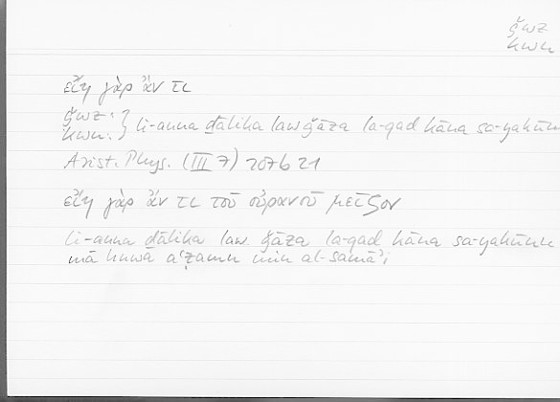 ǧwz
kwn
εἴη γὰρ ἄν τι
ǧwz:
kwn: } li-anna ḏālika law ǧāza la-qad kāna sa-yakūnu
Arist. Phys. (III 7) 207b21
εἴη γὰρ ἄν τι τοῦ οὐρανοῦ μεῖζον
li-anna ḏālika law ǧāza la-qad kāna sa-yakūnu
mā huwa aʿẓamu min al-samāʾi